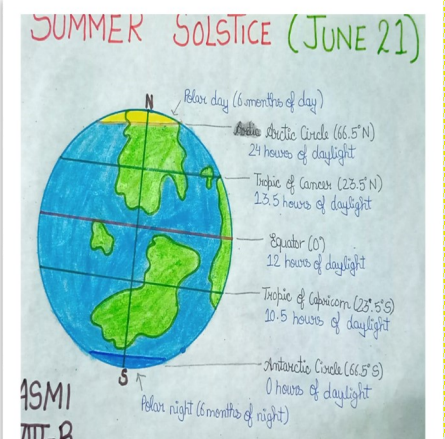 SUMMER SOLSTICE (JUNE 21)
N
Polar day (6 months of day)
Arctic Circle (66.5°N)
24 hours of daylight
Tropic of Cancer (23.5°N)
13.5 hours of daylight
Equator (0°)
12 hours of daylight
Tropic of Capricorn (23.5°S)
10.5 hours of daylight
Antarctic Circle (66.5°S)
0 hours of daylight
S
Polar night (6 months of night)
ASMI